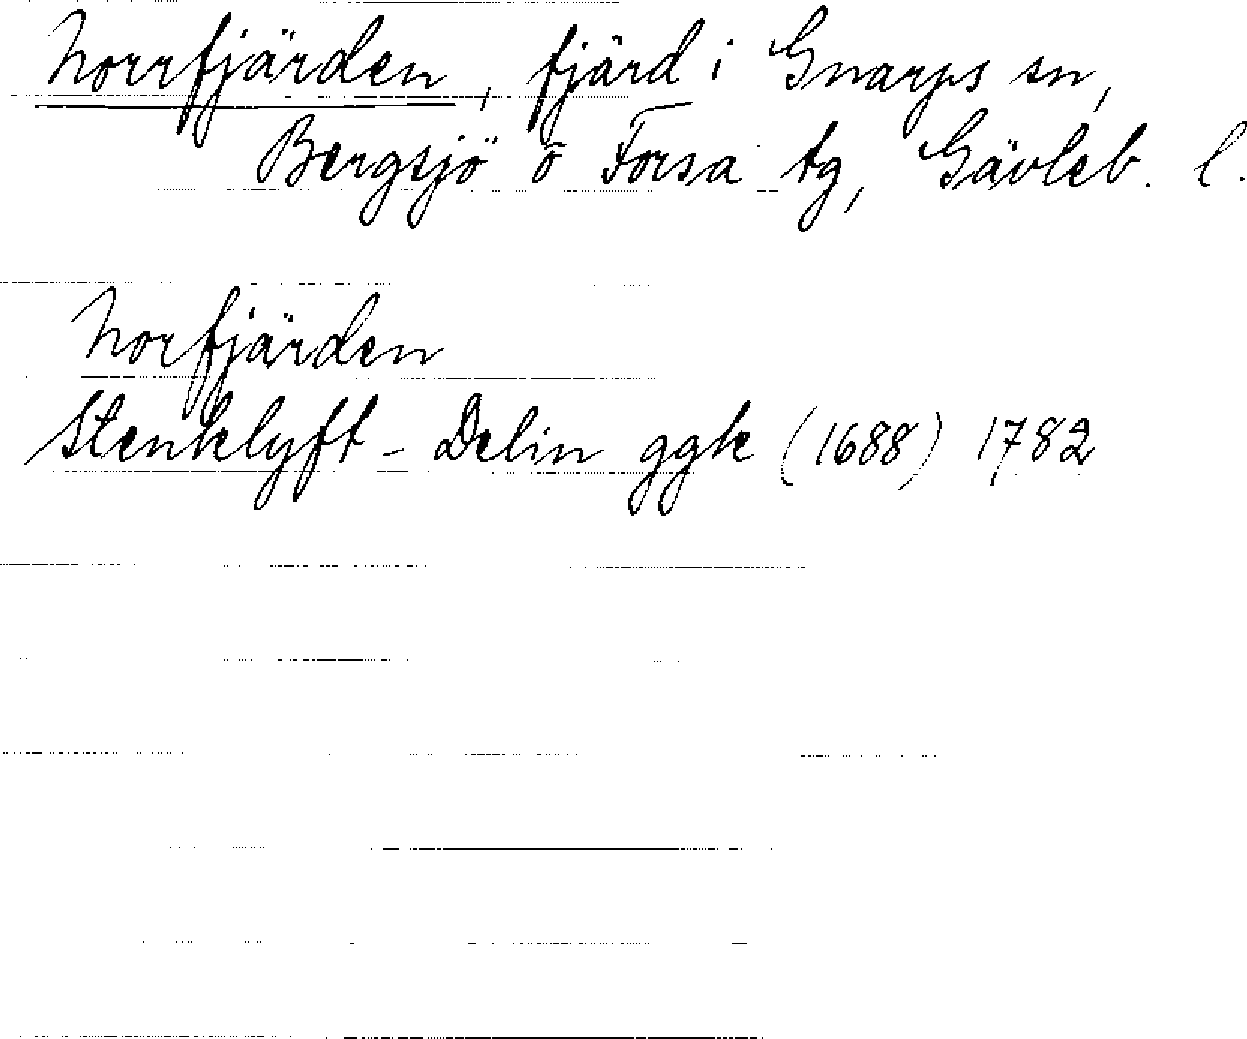 Norrfjärden, fjärd i Gnarps sn,
Bergsjö o Forsa tg, Gävleb. l.
Norfjärden
Stenklyft - Delin ggk (1688) 1782